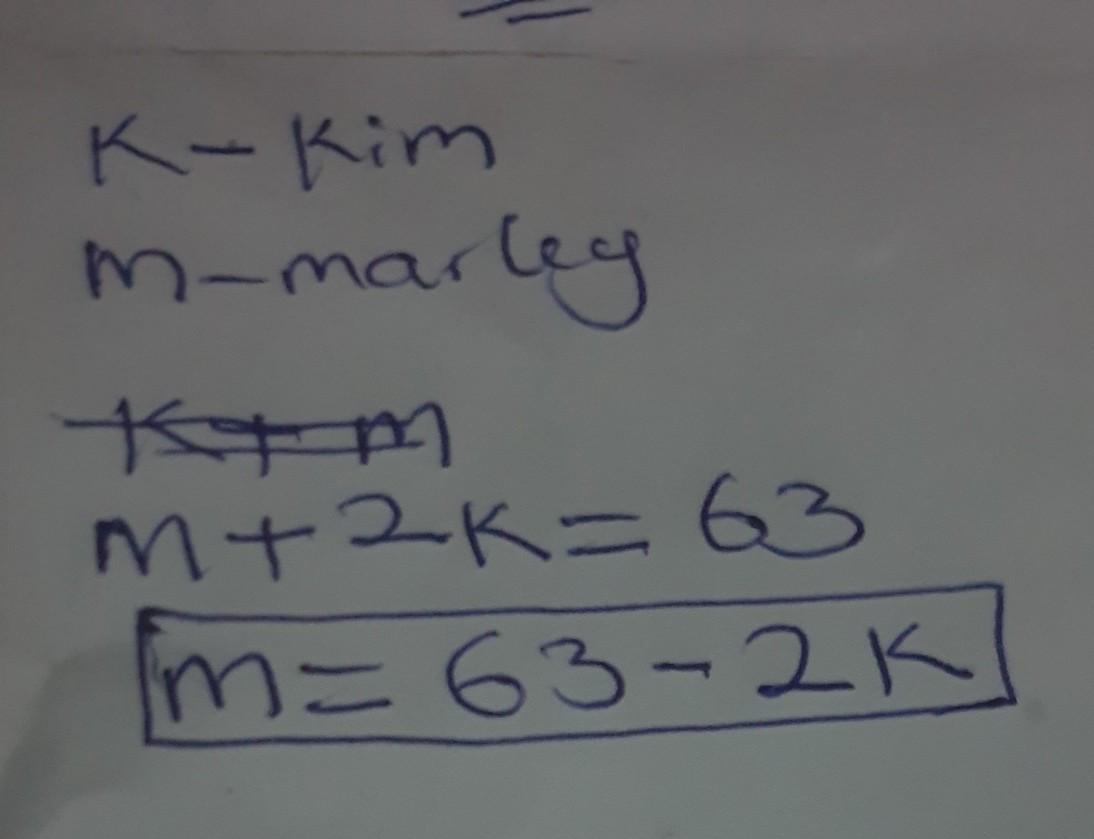 K - Kim
m - marley
K + m
m + 2K = 63
m = 63 - 2K